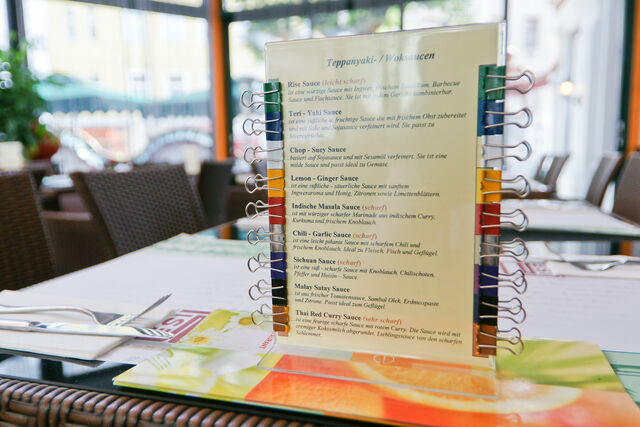 Teppanyaki- / Woksaucen
Rise Sauce (leicht scharf)
ist eine würzige Sauce mit Ingwer, frischem Barbecue
Sauce und Fischsauce. Sie ist mit jedem Gericht kombinierbar.
Teri - Yaki Sauce
ist eine süßliche u. fruchtige Sauce die mit frischem Obst zubereitet
und mit Sake und Sojasauce verfeinert wird. Sie passt zu
Chop - Suey Sauce
basiert auf Sojasauce und mit Sesamöl verfeinert. Sie ist eine
milde Sauce und passt ideal zu Gemüse.
Lemon - Ginger Sauce
ist eine süßliche - säuerliche Sauce mit sanftem
Ingweraroma und Honig, Zitronen sowie Limettenblättern.
Indische Masala Sauce (scharf)
ist mit würziger scharfer Marinade aus indischem Curry,
Kurkuma und frischem Knoblauch.
Chili - Garlic Sauce (scharf)
ist eine leicht pikante Sauce mit scharfem Chili und
frischem Knoblauch. Ideal zu Fleisch, Fisch und Geflügel.
Sichuan Sauce (scharf)
ist eine süß - scharfe Sauce mit Knoblauch, Chilischoten,
Pfeffer und Hoisin - Sauce.
Malay Satay Sauce
ist aus frischer Tomatensauce, Sambal Olek, Erdnusspaste
und Zitrone. Passt ideal zum Geflügel.
Thai Red Curry Sauce (sehr scharf)
ist eine feurige scharfe Sauce mit rotem Curry. Die Sauce wird mit
cremiger Kokosmilch abgerundet. Lieblingssauce von den scharfen
Schlemmer.